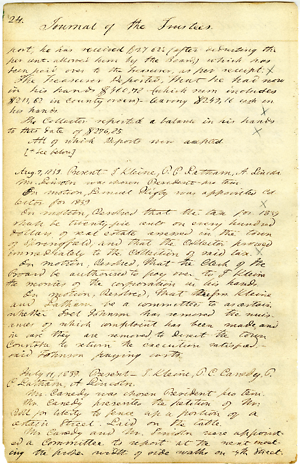 24.
Journal of the Trustees
port, he has received $27.62½ (after deducting the
per cent. allowed him by the Board) which has
been paid over to the treasurer, as per receipt. X
The Treasurer Reported, that he had now
in his hands (which sum includes
in county orders) leaving cash on
his hands X
The Collector reported a balance in his hands
to this date of $276,25 X
All of which Reports were accepted
[+ See below]
1839. Present J Kleine, P.C. Latham, A Lincoln
Mr Lincoln was chosen President pro tem.
On motion, Samuel was appointed Col-
lector for 1839 X
On motion, Resolved that the tax for 1839
shall be twenty five cents on every hundred
dollars of real estate assessed in the town
of Springfield, and that the Collector proceed
immediately to the Collection of said tax. X
On motion, Resolved, that the Clerk of the
Board be authorised to pay over to J Kleine
the monies of the corporation in his hands.
On motion Resolved, that Messrs Kleine
and Latham be a committee to ascertain
whether Joel Johnson has removed the nuis-
ance of which complaint has been made, and
in case they are removed to direct the town
Constable to return the execution satisfied
said Johnson paying costs.
July 11, 1839. Present J Kleine, P.C. Canedy, P.
C Latham, A Lincoln.
Mr Canedy was chosen President pro tem.
Mr Canedy presents the petition of
for liberty to fence up a portion of a
certain street. Laid on the table.
Mr Canedy and Mr were appoint-
ed a Committee to report at the next meet-
ing the proper width of side walks on 4th Street.